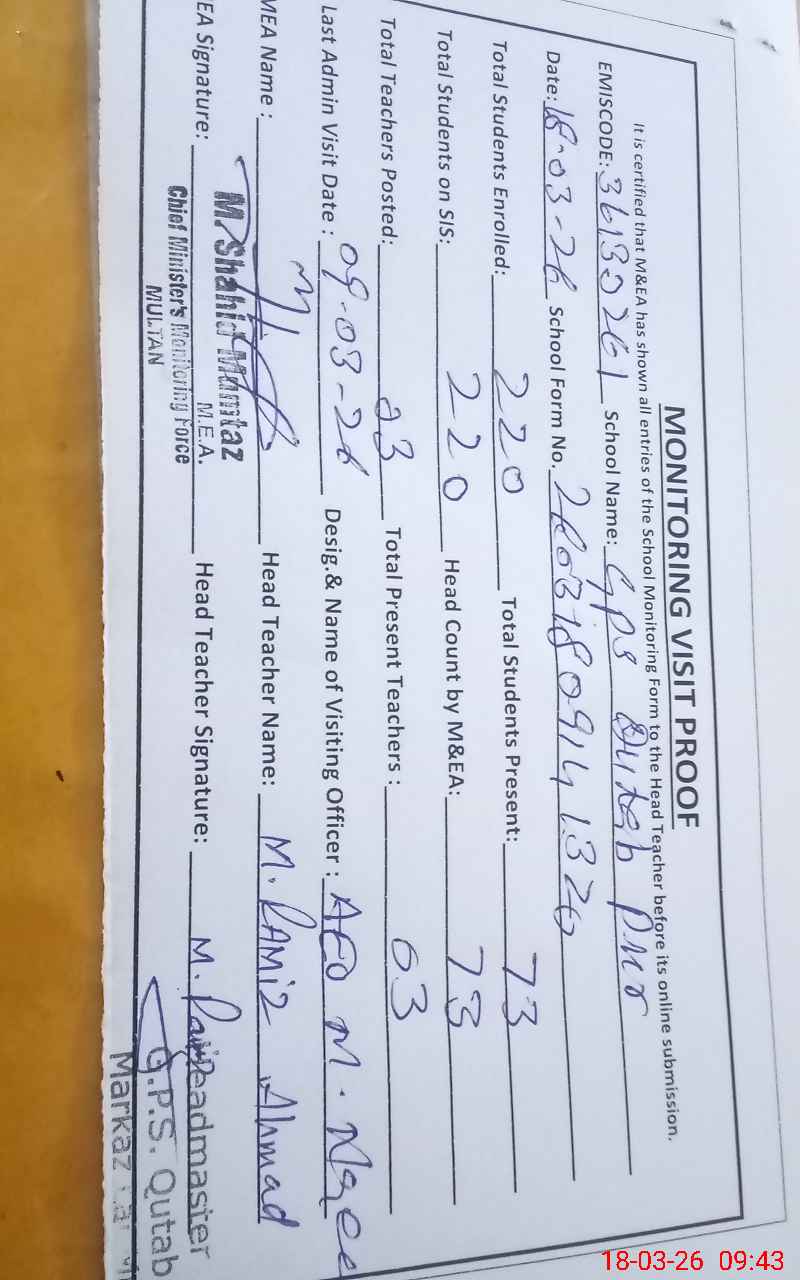 MONITORING VISIT PROOF
It is certified that M&EA has shown all entries of the School Monitoring Form to the Head Teacher before its online submission.
EMISCODE: 36130261 School Name: Gps Qutab Pur
Date: 18-03-26 School Form No.
Total Students Enrolled: 220 Total Students Present: 73
Total Students on SIS: 220 Head Count by M&EA: 73
Total Teachers Posted: 03 Total Present Teachers : 03
Last Admin Visit Date : 09-03-26 Desig.& Name of Visiting Officer : AEO M.
MEA Name : Head Teacher Name: M. RAMIZ Ahmad
EA Signature: Head Teacher Signature: M.
M. Shahid Mumtaz
M.E.A.
Chief Minister's Monitoring Force
MULTAN
Headmaster
G.P.S. Qutab
Markaz
18-03-26 09:43